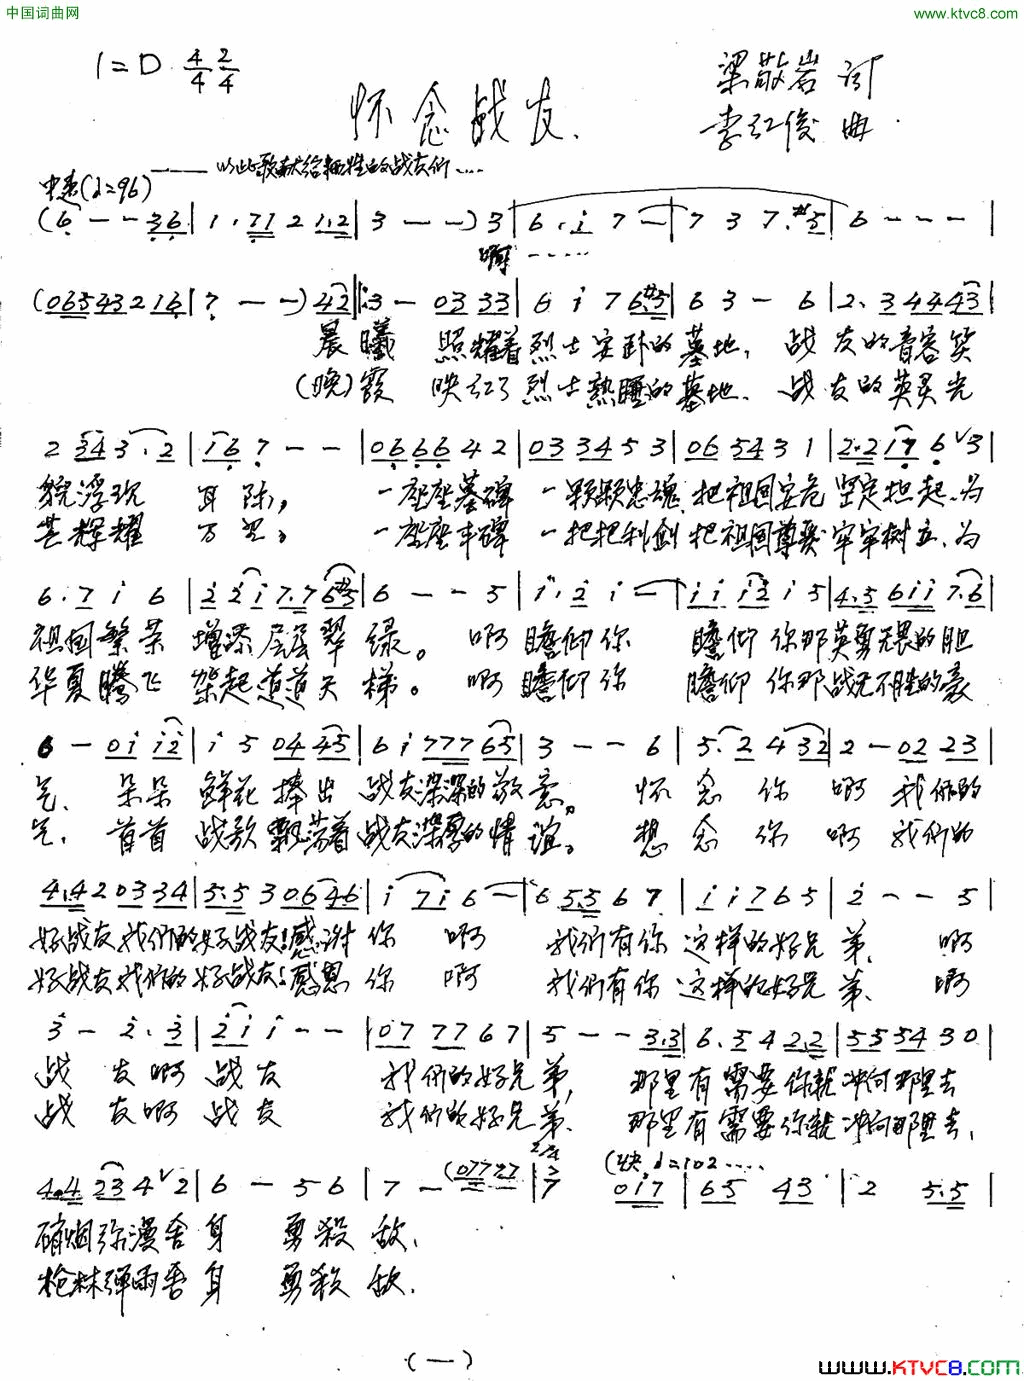 中国词曲网
www.ktvc8.com
1=D 4/4 2/4
梁敬岩 词
怀念战友.
李红俊 曲
——以此歌献给牺牲的战友们....
中速(♩=96)
(6 - - 3 6 | 1 . 7 1 2 1 . 2 | 3 - - ) 3 | 6 . i 7 - | 7 3 7 . #5 | 6 - - - |
啊......
(0 6 5 4 3 2 1 6 | 7 - - ) 4 2 ‖: 3 - 0 3 3 3 | 6 i 7 6 #5 | 6 3 - 6 | 2 . 3 4 4 4 3 |
晨曦 照耀着烈士安卧的墓地, 战友的音容笑
(晚)霞 映红了烈士熟睡的墓地. 战友的英灵光
2 3 4 3 . 2 | 1 6 7 - - | 0 6 6 6 4 2 | 0 3 3 4 5 3 | 0 6 5 4 3 1 | 2 . 2 1 7 6 ˇ 3 |
貌浮现 耳际, 一座座墓碑 一颗颗忠魂 把祖国安危 坚定担起,为
芒辉耀 万里, 一座座丰碑 一把把利剑 把祖国尊严 牢牢树立,为
6 . 7 i 6 | 2 2 i 7 . 7 6 #5 | 6 - - 5 | i . 2 i - | i i i 2 i 5 | 4 . 5 6 i i 7 . 6 |
祖国繁荣 增添层层翠绿。 啊 瞻仰你 瞻仰你那英勇无畏的胆
华夏腾飞 架起道道天梯。 啊 瞻仰你 瞻仰你那战无不胜的豪
6 - 0 i i 2 | i 5 0 4 4 5 | 6 i 7 7 7 6 5 | 3 - - 6 | 5 . 2 4 3 2 | 2 - 0 2 2 3 |
气, 朵朵 鲜花 捧出 战友深深的敬意。 怀念你 啊 我们的
气, 首首 战歌 飘荡着战友深厚的情谊。 想念你 啊 我们的
4 . 4 2 0 3 3 4 | 5 . 5 3 0 6 4 6 | i 7 i 6 - | 6 5 . 5 6 7 | i i 7 6 5 | 2 - - 5 |
好战友我们的好战友!感谢你 啊 我们有你 这样的好兄弟. 啊
好战友我们的好战友!感恩你 啊 我们有你 这样的好兄弟. 啊
3 - 2 . 3 | 2 i i - - | 0 7 7 7 6 7 | 5 - - 3 . 3 | 6 . 5 4 2 . 2 | 5 5 5 4 3 0 |
战友啊 战友 我们的好兄弟, 那里有需要你就冲向那里去
战友啊 战友 我们的好兄弟. 那里有需要你就冲向那里去,
(快 ♩=102 ....
4 . 4 2 3 4 ˇ 2 | 6 - 5 6 | 7 - (0 7 7 7 7 | 7 0 i 7 | 6 5 4 3 | 2 5 . 5 |
硝烟弥漫舍身 勇杀敌.
枪林弹雨舍身 勇杀敌.
(一)
www.KTVC8.com